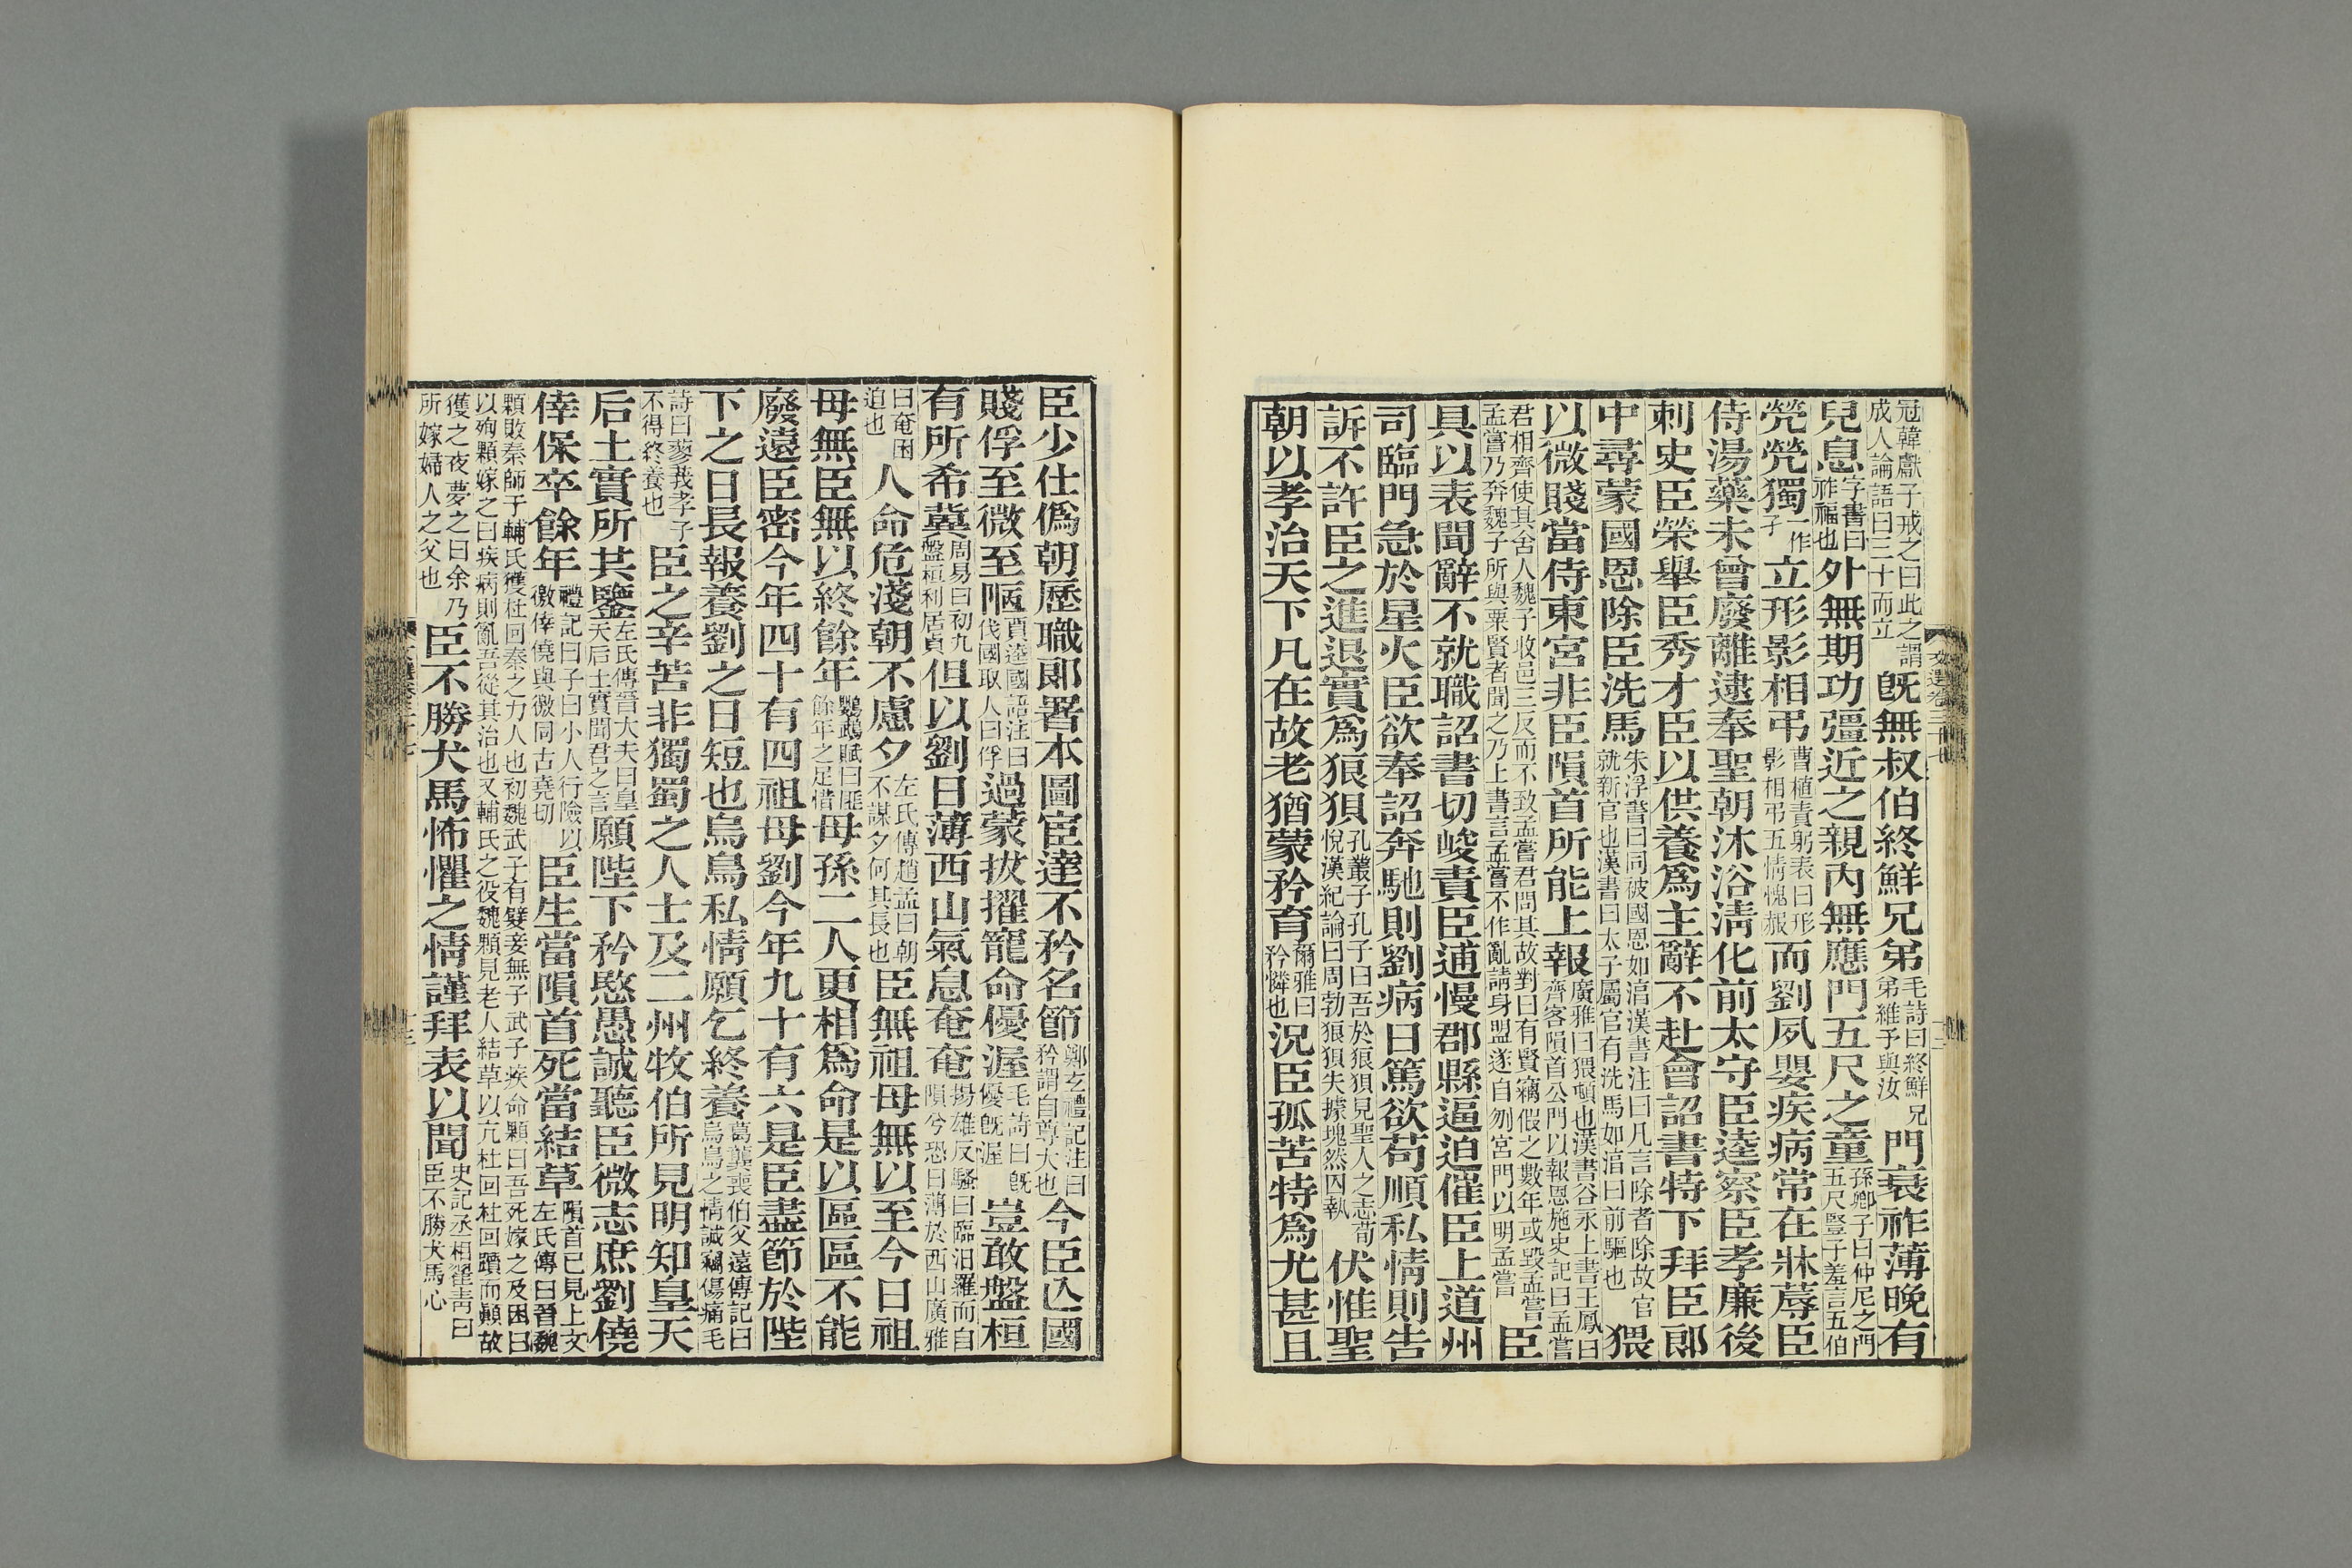 冠韓獻子戒之曰此之謂
成人論語曰三十而立
旣無叔伯終鮮兄弟
毛詩曰終鮮兄
弟維予與汝
門衰祚薄晚有
兒息
字書曰
祚福也
外無期功彊近之親內無應門五尺之童
孫卿子曰仲尼之門
五尺豎子羞言五伯
煢煢獨
一作
子
立形影相弔
曹植責躬表曰形
影相弔五情愧赧
而劉夙嬰疾病常在牀蓐臣
侍湯藥未曾廢離逮奉聖朝沐浴淸化前太守臣逵察臣孝廉後
刺史臣榮舉臣秀才臣以供養爲主辭不赴會詔書特下拜臣郞
中尋蒙國恩除臣洗馬
朱浮書曰同破國恩如淳漢書注曰凡言除者除故官
就新官也漢書曰太子屬官有洗馬如淳曰前驅也
猥
以微賤當侍東宮非臣隕首所能上報
廣雅曰猥頓也漢書谷永上書王鳳曰
齊客隕首公門以報恩施史記曰孟嘗
君相齊使其舍人魏子收邑三反而不致孟嘗君問其故對曰有賢竊假之數年或毀孟嘗
孟嘗乃奔魏子所與粟賢者聞之乃上書言孟嘗不作亂請身盟遂自刎宮門以明孟嘗
臣
具以表聞辭不就職詔書切峻責臣逋慢郡縣逼迫催臣上道州
司臨門急於星火臣欲奉詔奔馳則劉病日篤欲苟順私情則告
訴不許臣之進退實爲狼狽
孔叢子孔子曰吾於狼狽見聖人之志荀
悅漢紀論曰周勃狼狽失據塊然囚執
伏惟聖
朝以孝治天下凡在故老猶蒙矜育
爾雅曰
矜憐也
況臣孤苦特爲尤甚且
臣少仕僞朝歷職郞署本圖宦達不矜名節
鄭玄禮記注曰
矜謂自尊大也
今臣亾國
賤俘至微至陋
賈逵國語注曰
伐國取人曰俘
過蒙拔擢寵命優渥
毛詩曰旣
優旣渥
豈敢盤桓
有所希冀
周易曰初九
盤桓利居貞
但以劉日薄西山氣息奄奄
揚雄反騷曰臨汨羅而自
隕兮恐日薄於西山廣雅
曰奄困
迫也
人命危淺朝不慮夕
左氏傳趙孟曰朝
不謀夕何其長也
臣無祖母無以至今日祖
母無臣無以終餘年
鸚鵡賦曰匪
餘年之足惜
母孫二人更相爲命是以區區不能
廢遠臣密今年四十有四祖母劉今年九十有六是臣盡節於陛
下之日長報養劉之日短也烏鳥私情願乞終養
葛龔喪伯父還傳記曰
烏鳥之情誠竊傷痛毛
詩曰蓼莪孝子
不得終養也
臣之辛苦非獨蜀之人士及二州牧伯所見明知皇天
后土實所共鑒
左氏傳晉大夫曰皇
天后土實聞君之言
願陛下矜愍愚誠聽臣微志庶劉僥
倖保卒餘年
禮記曰子曰小人行險以
徼倖僥與徼同古堯切
臣生當隕首死當結草
隕首已見上文
左氏傳曰晉魏
顆敗秦師于輔氏獲杜回秦之力人也初魏武子有嬖妾無子武子疾命顆曰吾死嫁之及困曰
以殉顆嫁之曰疾病則亂吾從其治也又輔氏之役魏顆見老人結草以亢杜回杜回躓而顚故
獲之夜夢之曰余乃
所嫁婦人之父也
臣不勝犬馬怖懼之情謹拜表以聞
史記丞相翟靑曰
臣不勝犬馬心